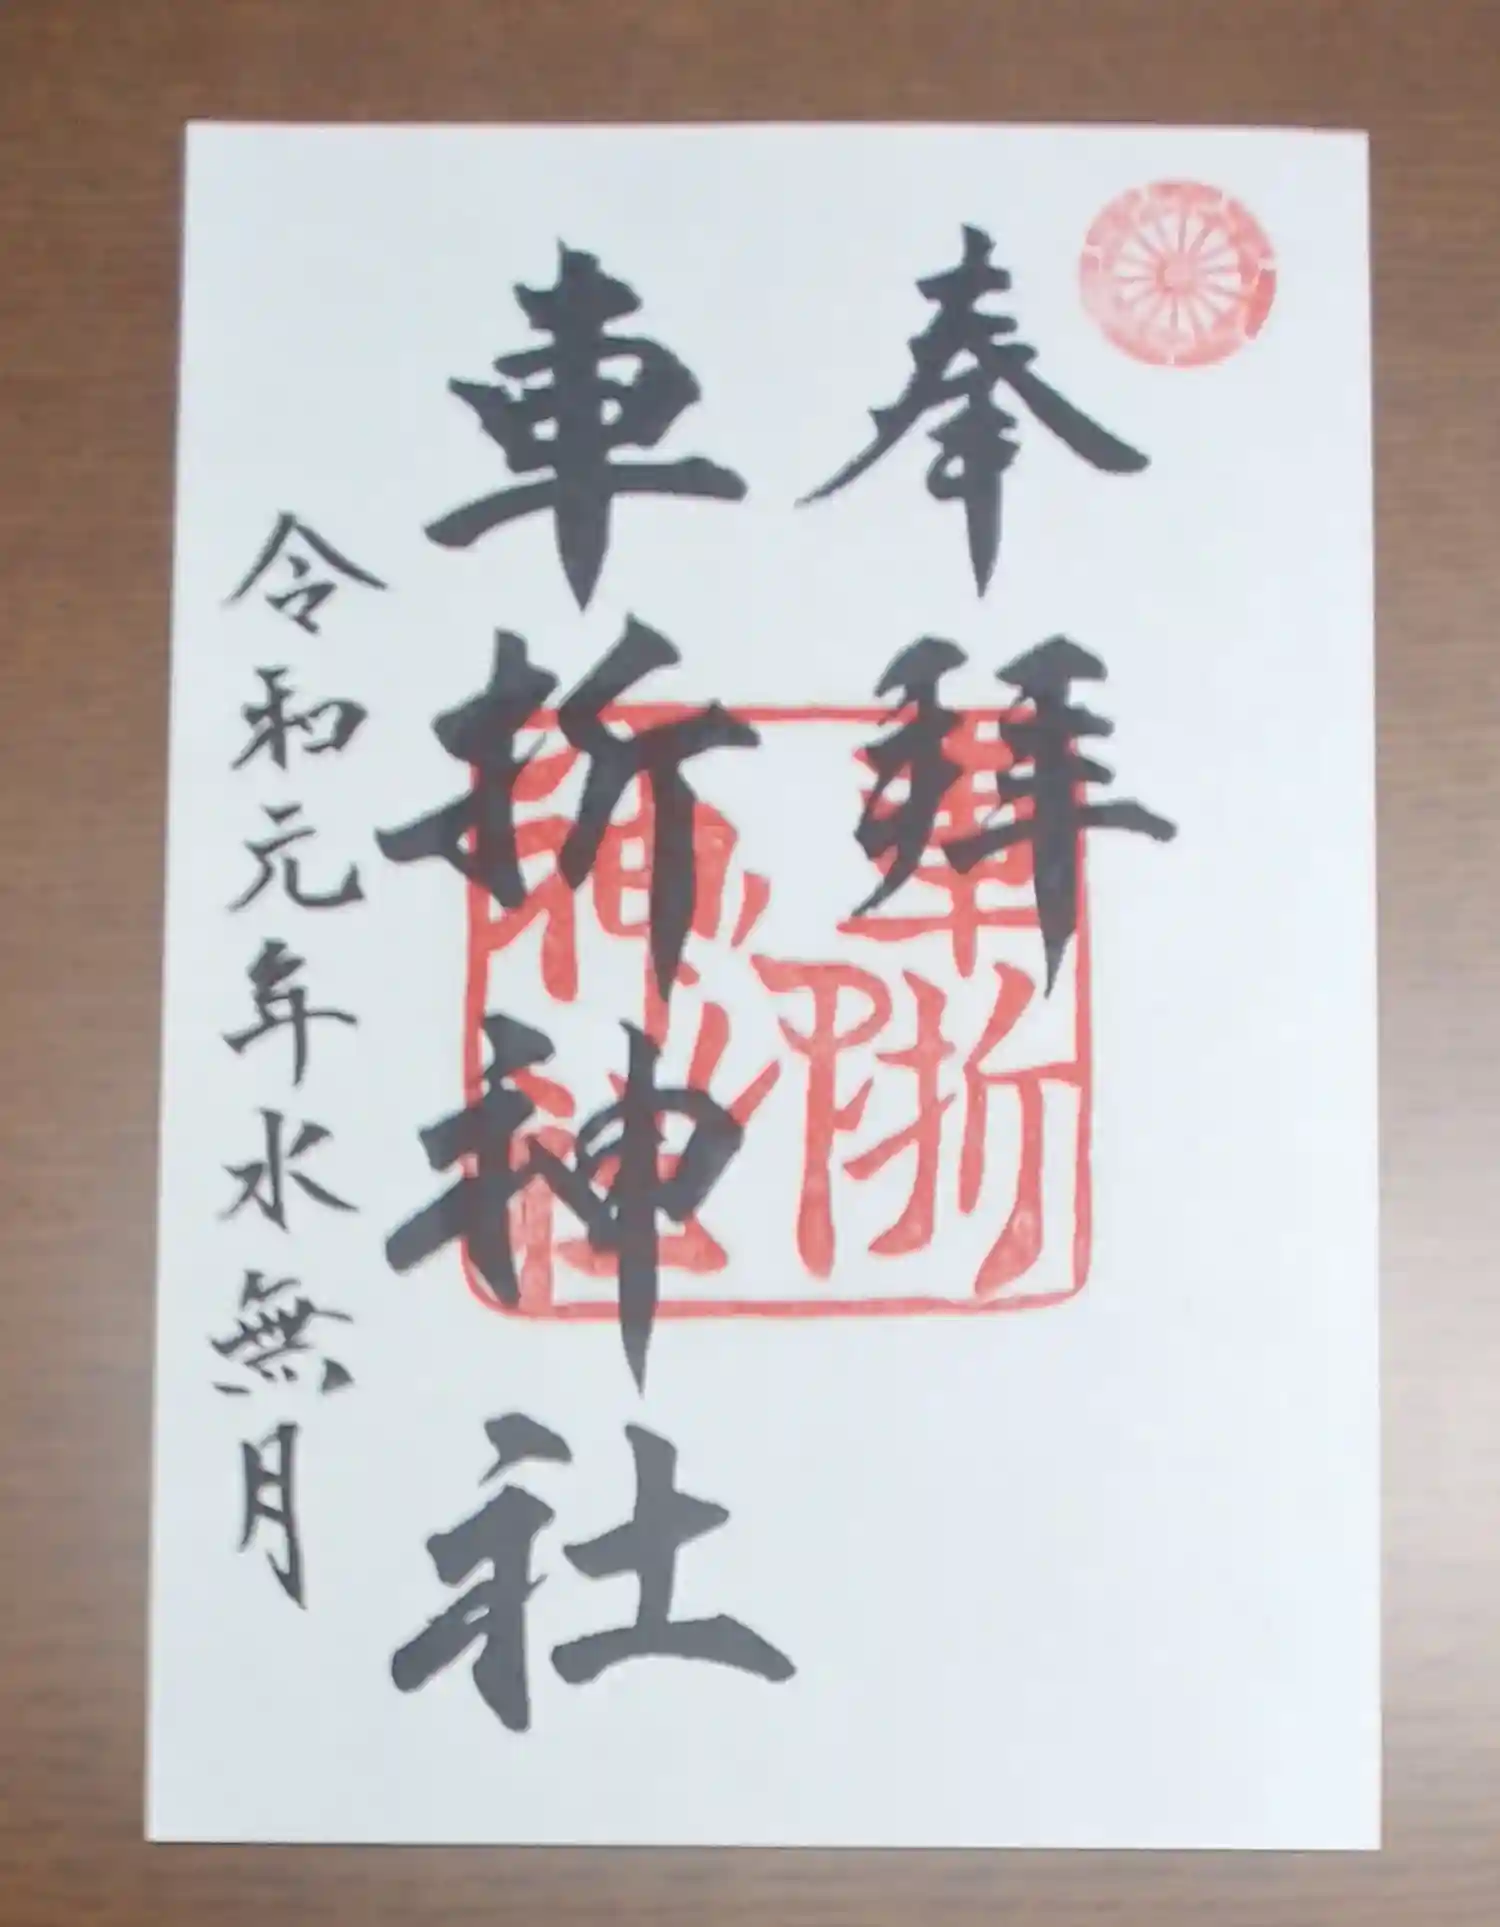 奉拜
車折神社
令和元年水無月
車折
神社